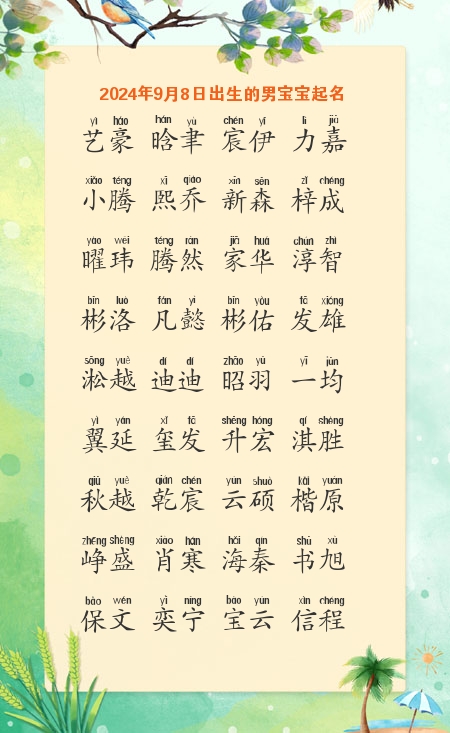 2024年9月8日出生的男宝宝起名
yì háo hán yù chén yī lì jiā
艺豪 晗聿 宸伊 力嘉
xiǎo téng xī qiáo xīn sēn zǐ chéng
小腾 熙乔 新森 梓成
yào wěi téng rán jiā huá chún zhì
曜玮 腾然 家华 淳智
bīn luò fán yì bīn yòu fā xióng
彬洛 凡懿 彬佑 发雄
sōng yuè dí dí zhāo yǔ yī jūn
淞越 迪迪 昭羽 一均
yì yán xǐ fā shēng hóng qí shèng
翼延 玺发 升宏 淇胜
qiū yuè qián chén yún shuò kǎi yuán
秋越 乾宸 云硕 楷原
zhēng shèng xiào hán hǎi qín shū xù
峥盛 肖寒 海秦 书旭
bǎo wén yì níng bǎo yún xìn chéng
保文 奕宁 宝云 信程